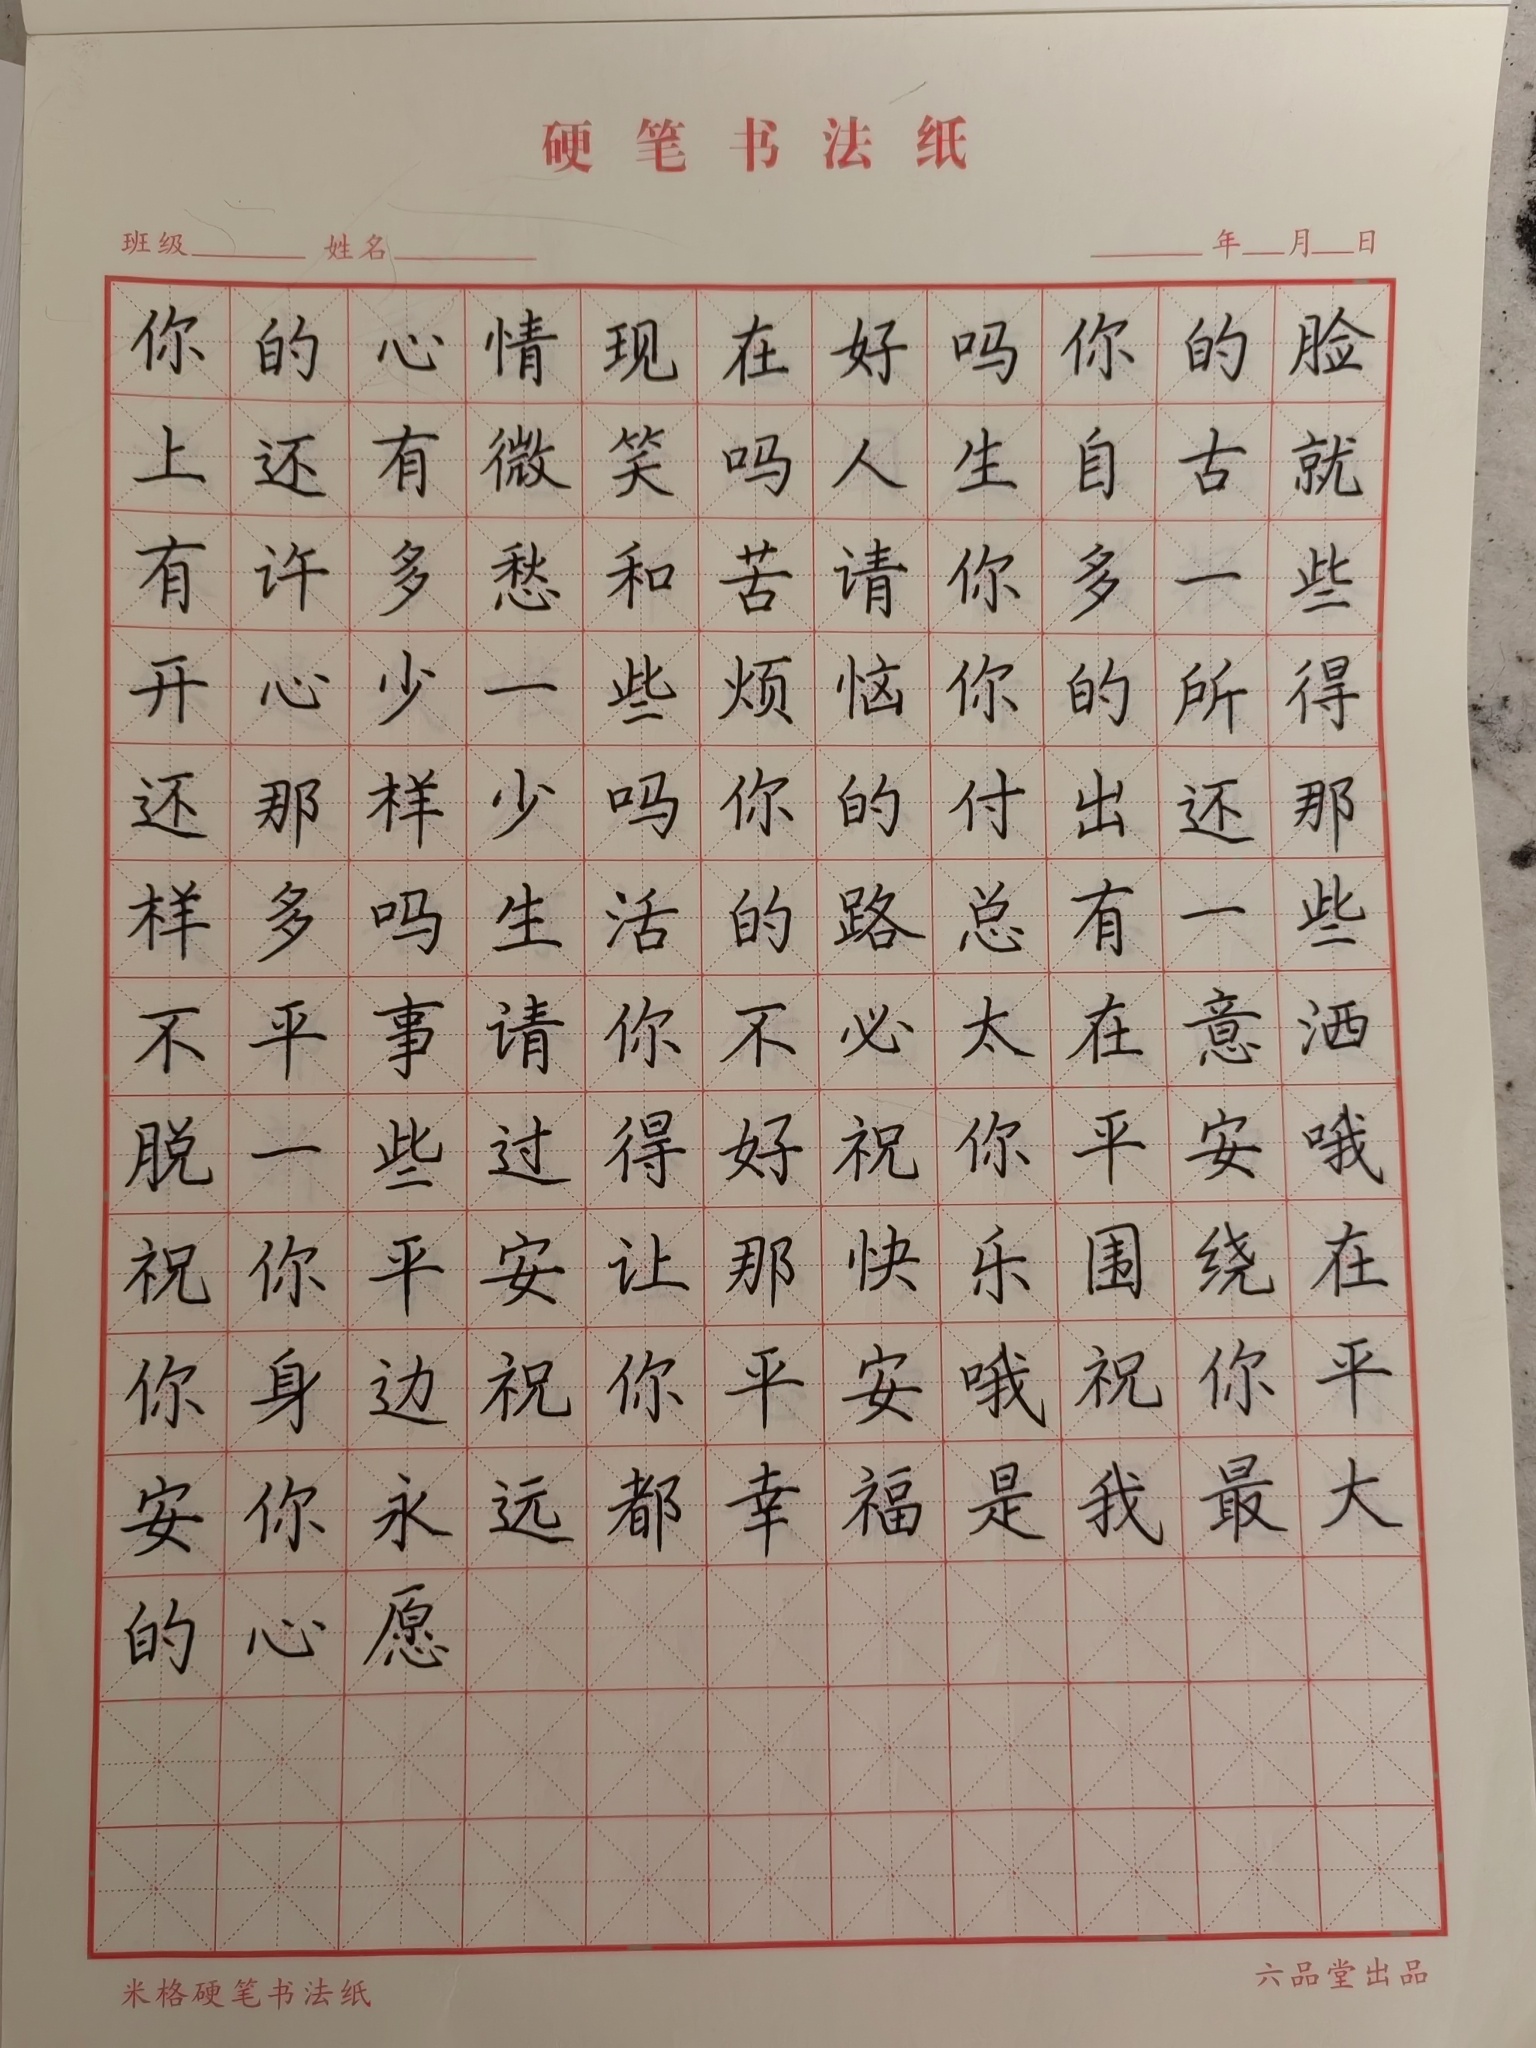 硬笔书法纸
班级 姓名 年 月 日
你的心情现在好吗你的脸
上还有微笑吗人生自古就
有许多愁和苦请你多一些
开心少一些烦恼你的所得
还那样少吗你的付出还那
样多吗生活的路总有一些
不平事请你不必太在意洒
脱一些过得好祝你平安哦
祝你平安让那快乐围绕在
你身边祝你平安哦祝你平
安你永远都幸福是我最大
的心愿
米格硬笔书法纸 六品堂出品